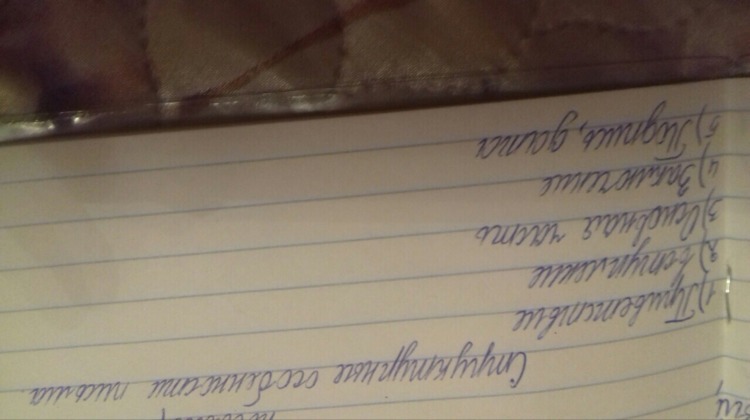 Структурные особенности письма
1) Приветствие
2) Вступление
3) Основная часть
4) Заключение
5) Подпись, дата